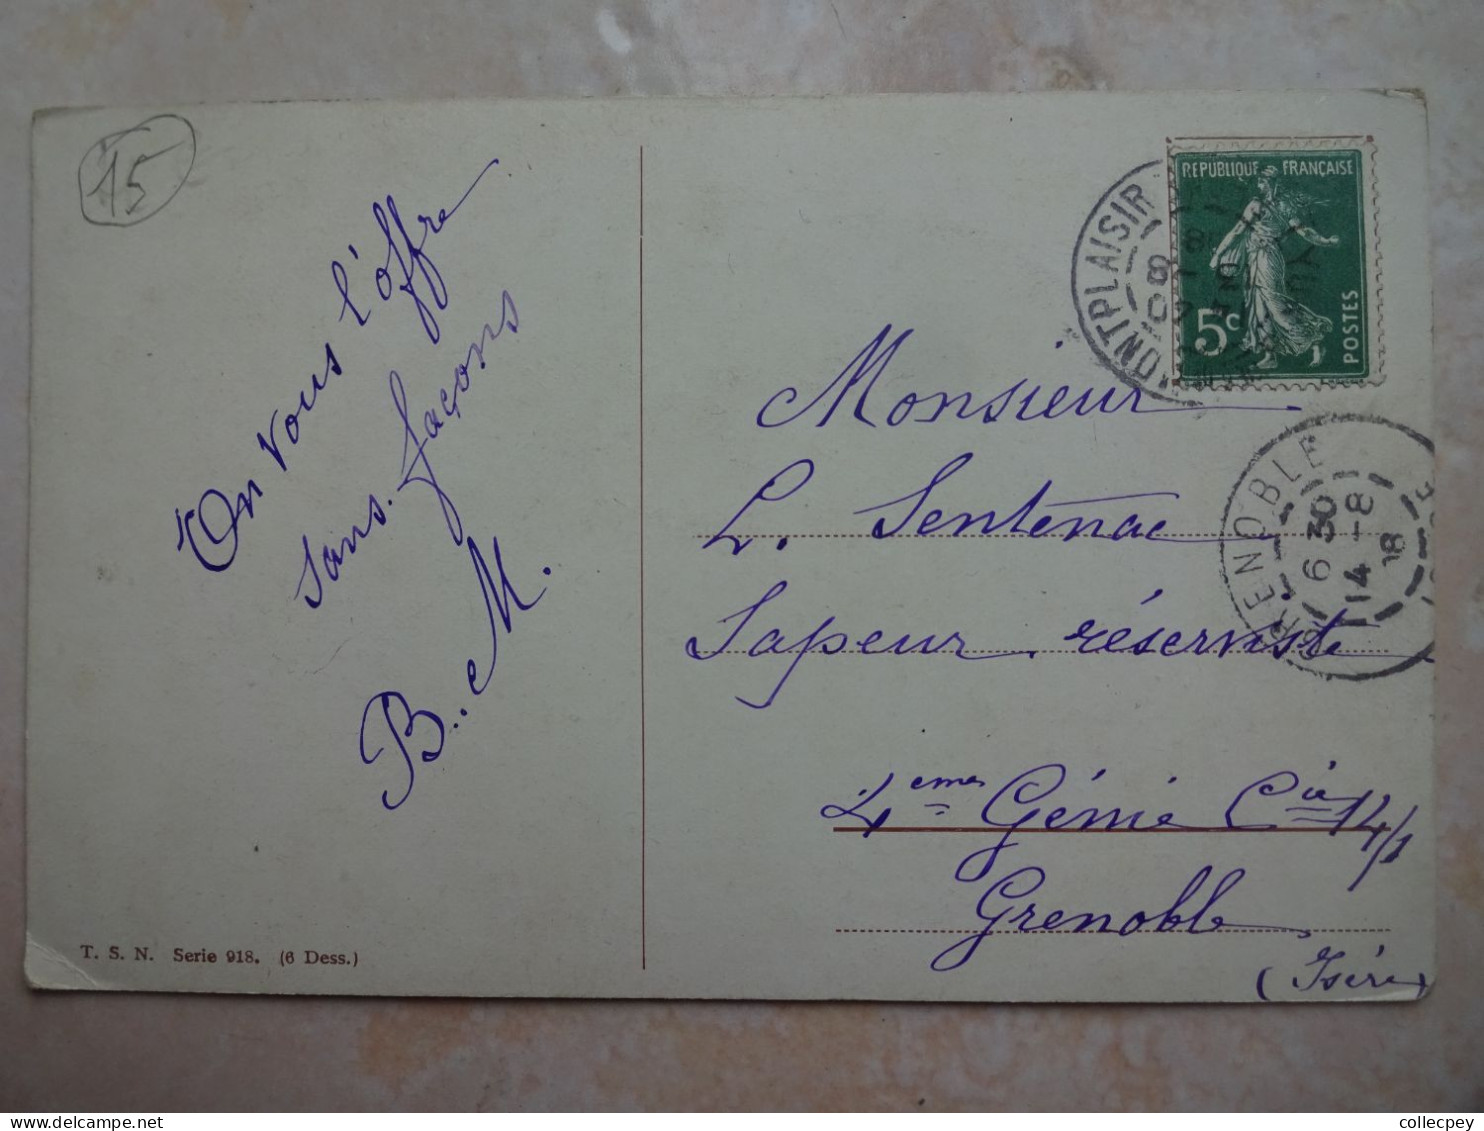 15
On vous l'offre
sans façons
B.. M.
T. S. N. Serie 918. (6 Dess.)
REPUBLIQUE FRANÇAISE
5c
POSTES
MONTPLAISIR
GRENOBLE
6 30
14 -8
18
Monsieur
L. Sentenac
Sapeur réserviste
4eme Génie Cie 14/1
Grenoble
(Isère)
collecpey